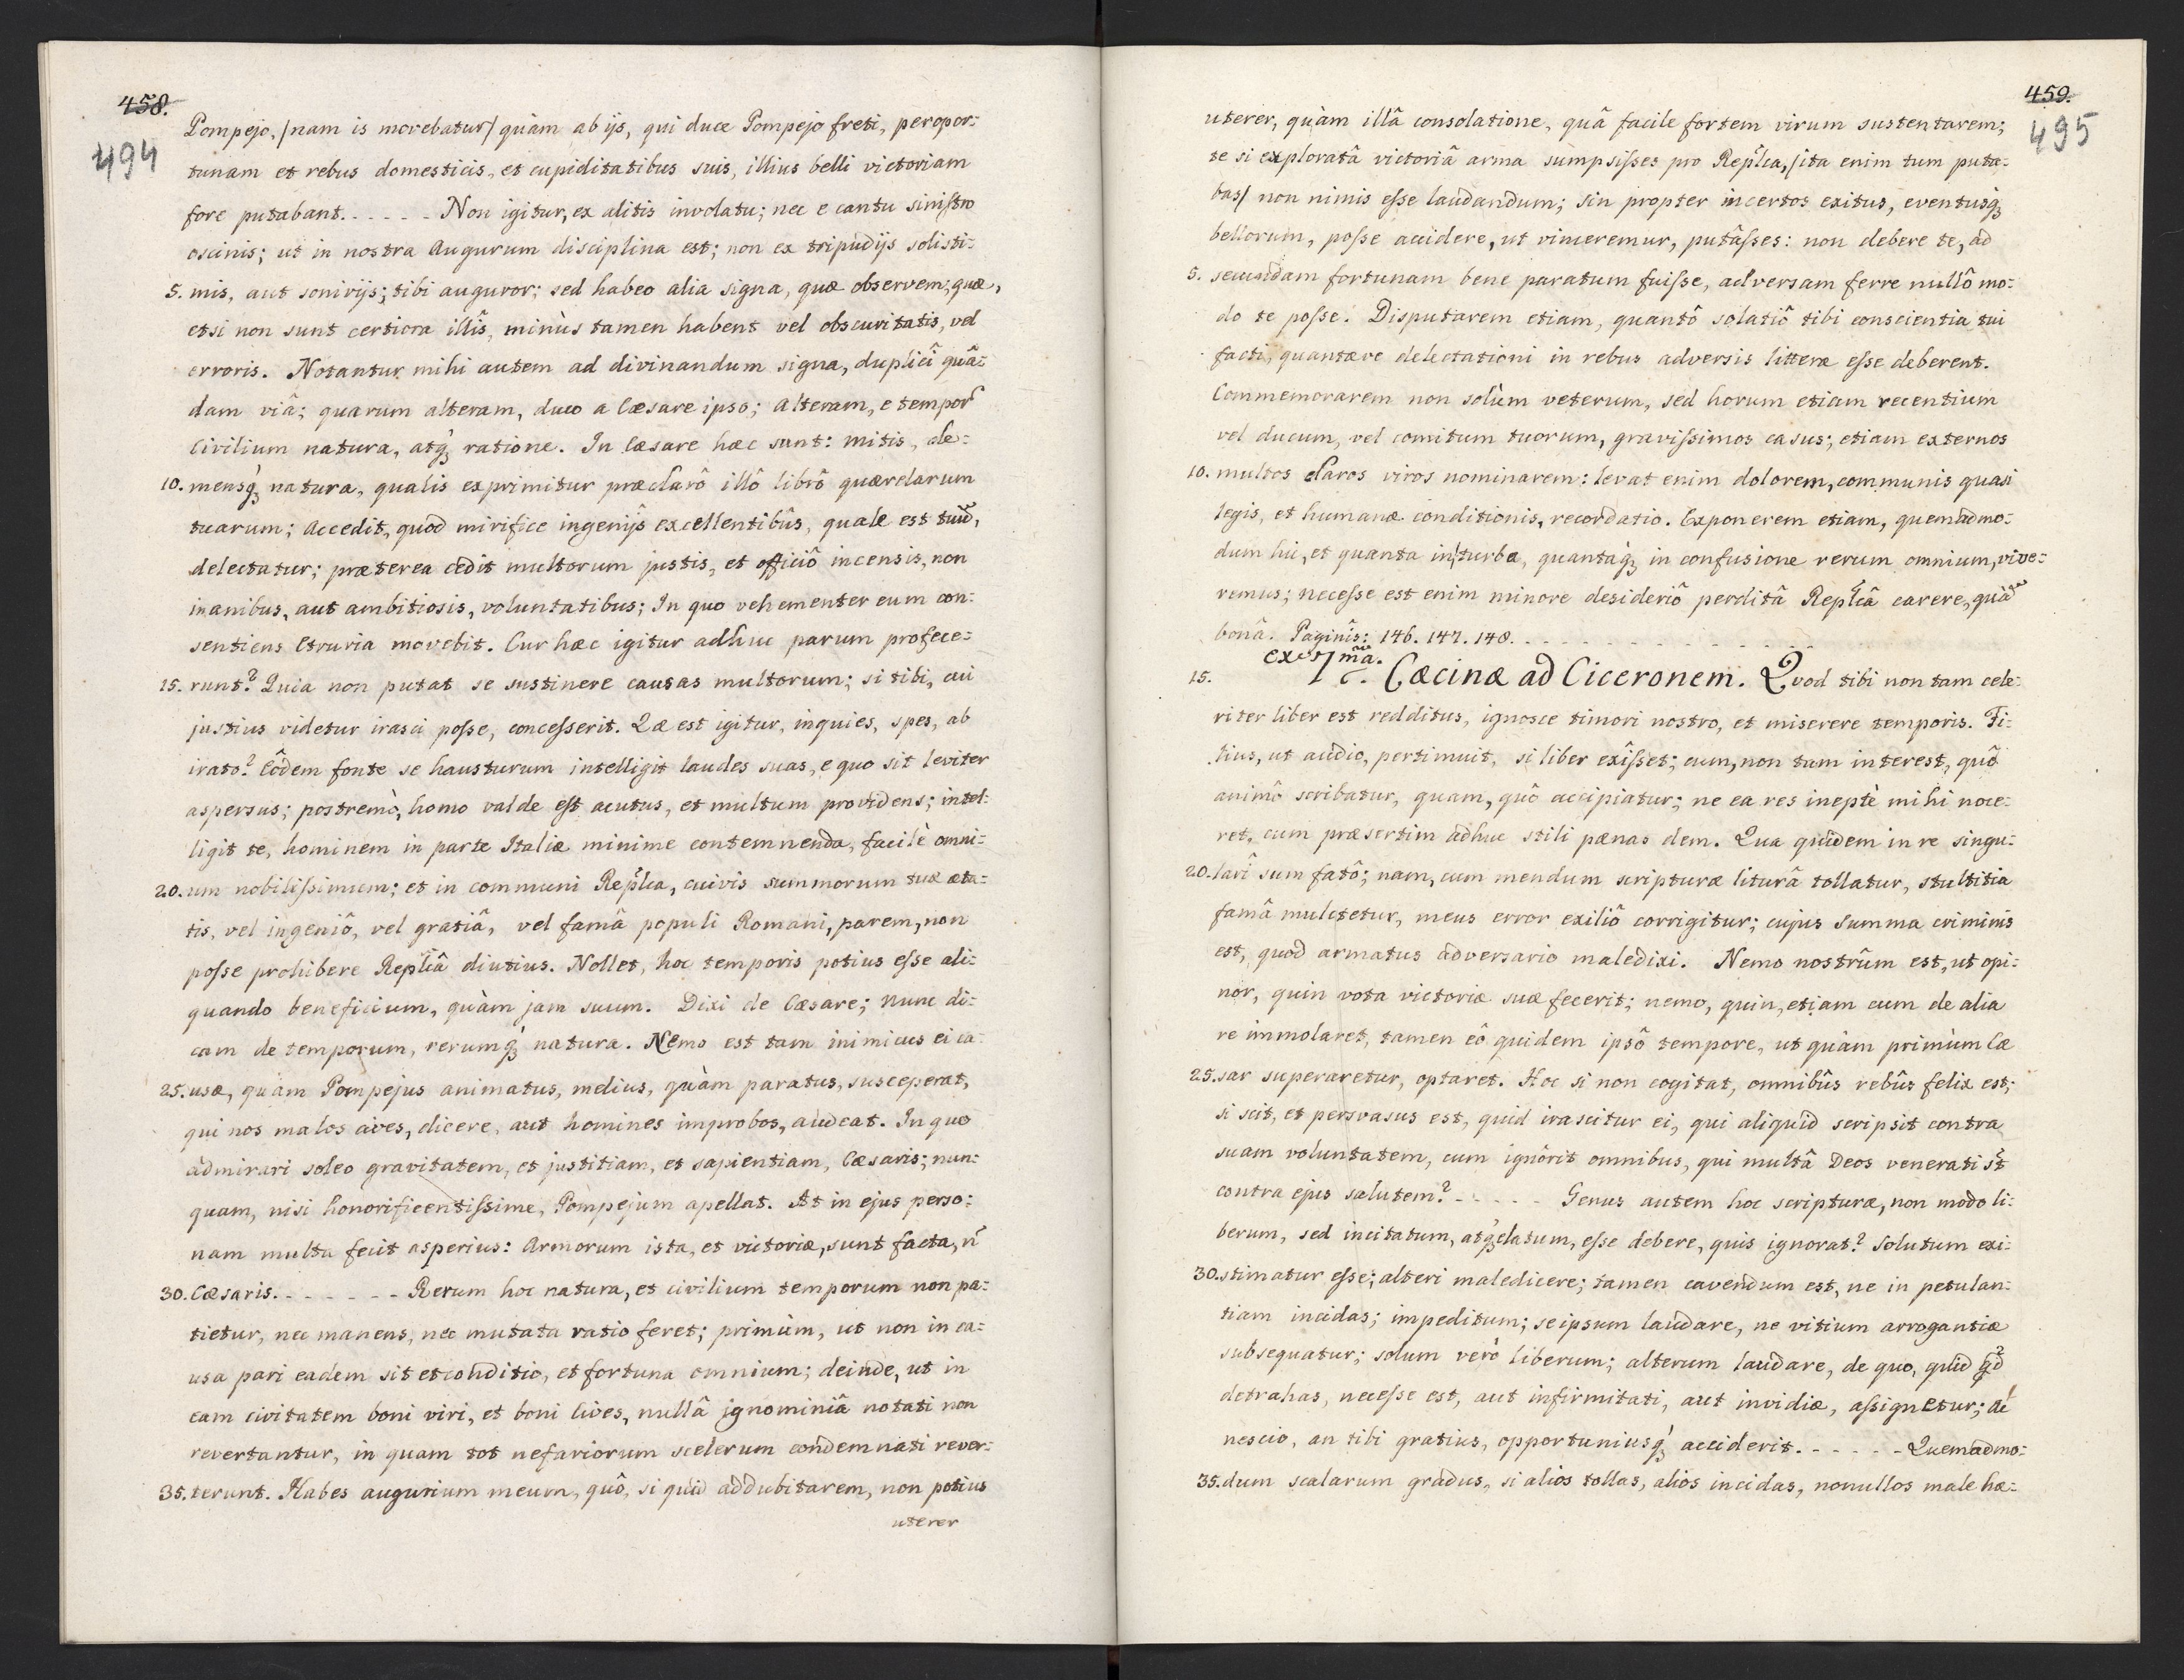 458.
494
Pompejo, /nam is movebatur/ quàm ab ijs, qui duce Pompejo freti, peropor:
tunam et rebus domesticis, et cupiditatibus suis, illius belli victoriam
fore putabant. - - - - - Non igitur, ex alitis involatu; nec e cantu sinistro
oscinis; ut in nostra Augurum disciplina est; non ex tripudijs solisti:
5. mis, aut sonivijs; tibi auguror; sed habeo alia signa, quæ observem; quæ,
etsi non sunt certiora illîs, minùs tamen habent vel obscuritatis, vel
erroris. Notantur mihi autem ad divinandum signa, duplicî quâ:
dam viâ; quarum alteram, duco a Cæsare ipso; Alteram, e tempor̃
Civilium natura, atq́ꝫ ratione. In Cæsare hæc sunt: mitis, cle:
10. mensq́ꝫ natura, qualis exprimitur præclarô illô librô quærelarum
tuarum; Accedit, quod mirifice ingenijs excellentibûs, quale est tuũ,
delectatur; præterea cedit multorum justis, et officiô incensis, non
inanibus, aut ambitiosis, voluntatibus; In quo vehementer eum con:
sentiens Etruria movebit. Cur hæc igitur adhuc parum profece:
15. runt? Quia non putat se sustinere causas multorum; si tibi, cui
justius videtur irasci posse, concesserit. Quæ est igitur, inquies, spes, ab
irato? Eôdem fonte se hausturum intelligit laudes suas, e quo sit leviter
aspersus; postremò, homo valde est acutus, et multum providens; intel:
ligit te, hominem in parte Italiæ minime contemnenda, facilè omni:
20. um nobilissimum; et in communi Repl̃ica, cuivis summorum tuæ æta:
tis, vel ingeniô, vel gratiâ, vel famâ populi Romani, parem, non
posse prohibere Repl̃icâ diutius. Nollet, hoc temporis potius esse ali:
quando beneficium, quàm jam suum. Dixi de Cæsare; Nunc di:
cam de temporum, rerumq́ꝫ natura. Nemo est tam inimicus ei ca:
25. usæ, quàm Pompejus animatus, melius, quàm paratus, susceperat,
qui nos malos cives, dicere, aut homines improbos, audeat. In quo
admirari soleo gravitatem, et justitiam, et sapientiam, Cæsaris; nun:
quam, nisi honorificentissime, Pompejum apellat. At in ejus perso:
nam multa fecit asperius: Armorum ista, et victoriæ, sunt facta, ñ
30. Cæsaris. - - - - - - - Rerum hoc natura, et civilium temporum non pa:
tietur, nec manens, nec mutata ratio feret; primùm, ut non in ca:
usa pari eadem sit et conditio, et fortuna omnium; deinde, ut in
eam civitatem boni viri, et boni Cives, nullâ ignominiâ notati non
revertantur, in quam tot nefariorum scelerum condemnati rever:
35. terunt. Habes augurium meum, quô, si quid addubitarem, non potius
uterer
459.
495
uterer, quàm illâ consolatione, quâ facile fortem virum sustentarem;
te si exploratâ victoriâ arma sumpsisses pro Repl̃ica, /ita enim tum puta:
bas/ non nimis esse laudandum; sin propter incertos exitus, eventusq́ꝫ
bellorum, posse accidere, ut vinceremur, putâsses: non debere te, ad
5. secundam fortunam bene paratum fuisse, adversam ferre nullô mo:
do te posse. Disputarem etiam, quantô solatiô tibi conscientia tui
facti, quantæve delectationi in rebus adversis litteræ esse deberent.
Commemorarem non solùm veterum, sed horum etiam recentium
vel ducum, vel comitum tuorum, gravissimos casus; etiam externos
10. multos claros viros nominarem: levat enim dolorem, communis quasi
legis, et humanæ conditionis, recordatio. Exponerem etiam, quemadmo:
dum hic, et quanta in turba, quantaq́ꝫ in confusione rerum omnium, vive:
remus; necesse est enim minore desideriô perditâ Repl̃icâ carere, quã
bonâ. Paginis: 146. 147. 148. - - - - - - - - - - - - - - - -
15. ex 7mã. Cæcinæ ad Ciceronem. Quod tibi non tam cele:
riter liber est redditus, ignosce timori nostro, et miserere temporis. Fi:
lius, ut audio, pertimuit, si liber exîsset; cum, non tam interest, quô
animô scribatur, quam, quô accipiatur; ne ea res ineptè mihi noce:
ret, cum præsertim adhuc stili pœnas dem. Qua quidem in re singu:
20. larî sum fatô; nam, cum mendum scripturæ liturâ tollatur, stultitia
famâ mulctetur, meus error exiliô corrigitur; cujus summa criminis
est, quod armatus adversario maledixi. Nemo nostrûm est, ut opi:
nor, quin vota victoriæ suæ fecerit; nemo, quin, etiam cum de alia
re immolaret, tamen eô quidem ipsô tempore, ut quàm primùm Cæ
25. sar superaretur, optaret. Hoc si non cogitat, omnibûs rebûs felix est;
si scit, et persvasus est, quid irascitur ei, qui aliquid scripsit contra
suam voluntatem, cum ignôrit omnibus, qui multâ Deos venerati st̃
contra ejus salutem? - - - - - Genus autem hoc scripturæ, non modo li:
berum, sed incitatum, atq́ꝫ elatum, esse debere, quis ignorat? Solutum exi:
30. stimatur esse; alteri maledicere; tamen cavendum est, ne in petulan:
tiam incidas; impeditum; seipsum laudare, ne vitium arrogantiæ
subsequatur; solum verò liberum; alterum laudare, de quo, quid qd̃
detrahas, necesse est, aut infirmitati, aut invidiæ, assignetur; Ac
nescio, an tibi gratius, opportuniusq́ꝫ acciderit. - - - - - - Quemadmo:
35. dum scalarum gradus, si alios tollas, alios incidas, nonullos male hæ: